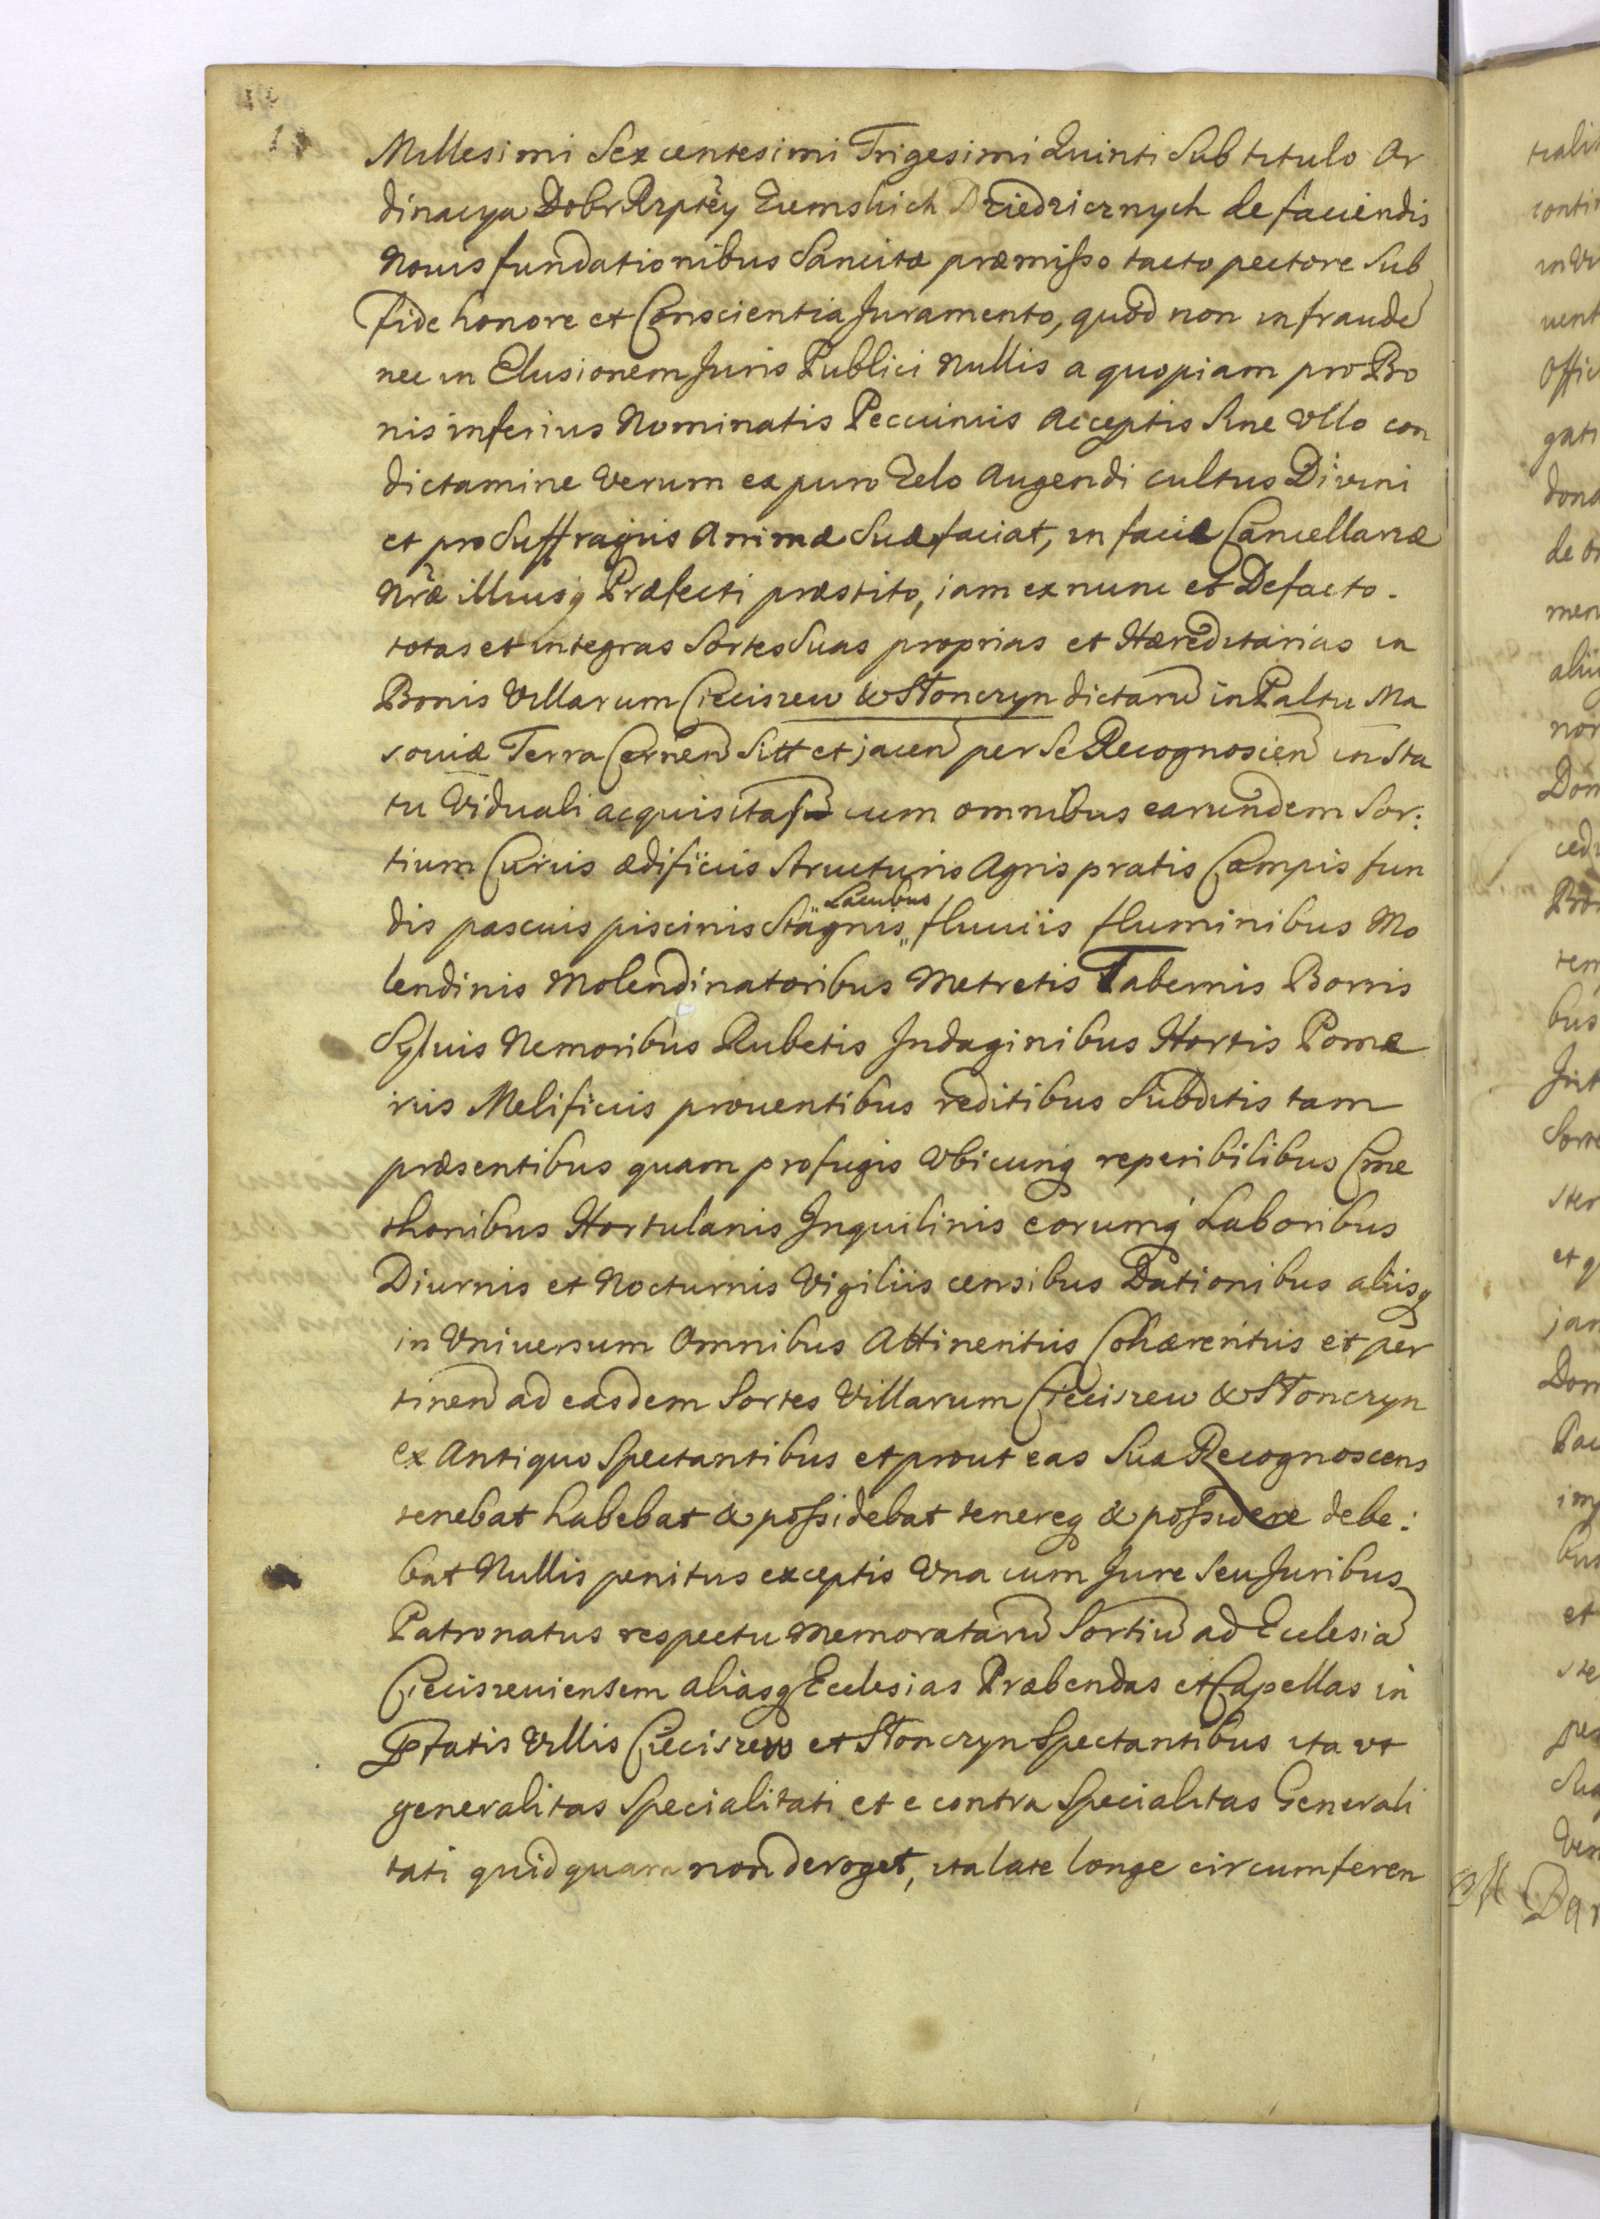 Millesimi Sexcentesimi Trigesimi Quinti Sub titulo Or
dinacya Dobr Rzptey Ziemskich Dziedzicznych de faciendis
Nouis fundationibus Sancitæ præmisso tacto pectore Sub
fide honore et Conscientia Juramento, quod non in fraude
nec in Elusionem Juris Publici Nullis a quopiam pro Bo
nis inferius Nominatis Peccuniis Acceptis Sine Vllo con
dictamine Verum ex puro Zelo Augendi cultus Divini
et pro Suffragiis Animæ Suæ faciat, in facie Cancellariæ
Nræ illiusq Præfecti præstito, iam ex nunc et Defacto.
totas et integras Sortes Suas proprias et Hæreditarias in
Bonis Villarum Cieciszew & Słonczyn dictaru in Paltu Ma
soviæ Terra Cernen Sitt et jacen per Se Recognoscen in Sta
tu Viduali acquisitas cum omnibus earundem Sor:
tium Curiis ædificiis Structuris Agris pratis Campis fun
Lacubus
dis pascuis piscinis Stagnis „ fluuiis fluminibus Mo
lendinis Molendinatoribus Metretis Tabernis Borris
Syluis Nemoribus Rubetis Indaginibus Hortis Pomæ
riis Melificiis prouentibus reditibus Subditis tam
præsentibus quam profugis Vbicunq reperibilibus Cme
thonibus Hortulanis Inquilinis eorumq Laboribus
Diurnis et Nocturnis Vigiliis censibus Dationibus aliisq
in Vniuersum Omnibus Attinentiis Cohærentiis et per
tinen ad easdem Sortes Villarum Cieciszew & Słonczyn
ex Antiquo Spectantibus et prout eas Sua Recognoscens
tenebat habebat & possidebat tenereq & possidere debe:
bat Nullis penitus exceptis Vna cum Jure Seu Juribus
Patronatus respectu Memorataru Sortiu ad Ecclesia
Cieciszeuiensem aliasq Ecclesias Præbendas et Capellas in
Pfatis Villis Cieciszew et Słonczyn Spectantibus ita vt
generalitas Specialitati et e contra Specialitas Generali
tati quidquam non deroget, ita late longe circumferen